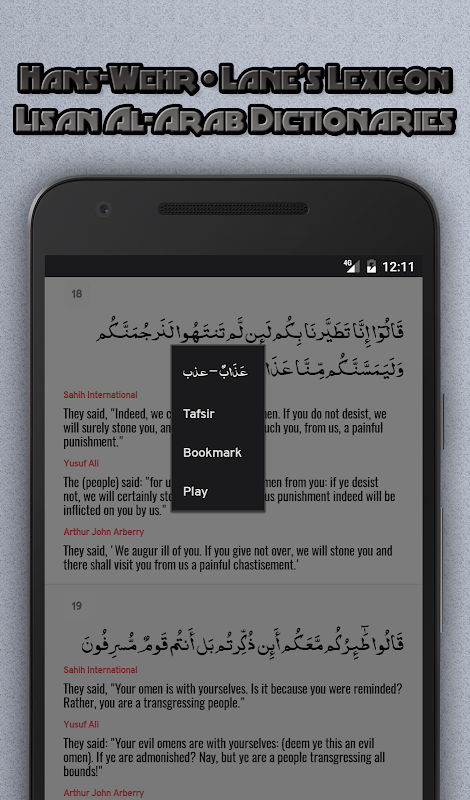 Hans-Wehr • Lane's Lexicon
Lisan Al-Arab Dictionaries
4G 12:11
18
قَالُوٓا۟ إِنَّا تَطَيَّرْنَا بِكُمْ لَئِن لَّمْ تَنتَهُوا۟ لَنَرْجُمَنَّكُمْ
وَلَيَمَسَّنَّكُم مِّنَّا عَذَا
عَذَابٌ – عذب
Tafsir
Bookmark
Play
Sahih International
They said, "Indeed, we c men. If you do not desist, we
will surely stone you, an uch you, from us, a painful
punishment."
Yusuf Ali
The (people) said: "for u men from you: if ye desist
not, we will certainly sto us punishment indeed will be
inflicted on you by us."
Arthur John Arberry
They said, 'We augur ill of you. If you give not over, we will stone you and
there shall visit you from us a painful chastisement.'
19
قَالُوا۟ طَٰٓئِرُكُم مَّعَكُمْ أَئِن ذُكِّرْتُم بَلْ أَنتُمْ قَوْمٌ مُّسْرِفُونَ
Sahih International
They said, "Your omen is with yourselves. Is it because you were reminded?
Rather, you are a transgressing people."
Yusuf Ali
They said: "Your evil omens are with yourselves: (deem ye this an evil
omen). If ye are admonished? Nay, but ye are a people transgressing all
bounds!"
Arthur John Arberry